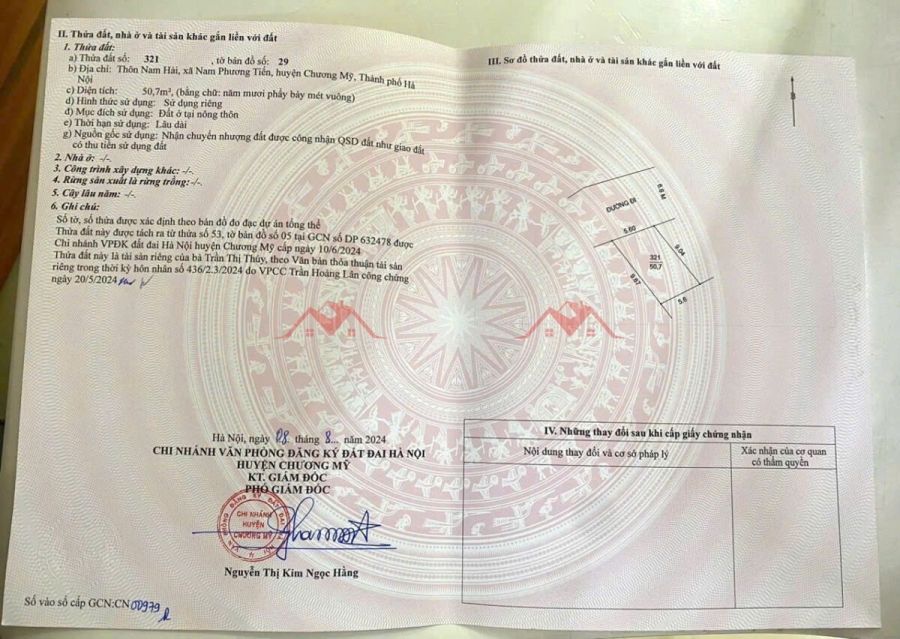 II. Thửa đất, nhà ở và tài sản khác gắn liền với đất
1. Thửa đất:
a) Thửa đất số: 321 , tờ bản đồ số: 29
b) Địa chỉ: Thôn Nam Hài, xã Nam Phương Tiến, huyện Chương Mỹ, Thành phố Hà
Nội
c) Diện tích: 50,7m², (bằng chữ: năm mươi phẩy bảy mét vuông)
d) Hình thức sử dụng: Sử dụng riêng
đ) Mục đích sử dụng: Đất ở tại nông thôn
e) Thời hạn sử dụng: Lâu dài
g) Nguồn gốc sử dụng: Nhận chuyển nhượng đất được công nhận QSD đất như giao đất
có thu tiền sử dụng đất
2. Nhà ở: -/-.
3. Công trình xây dựng khác: -/-.
4. Rừng sản xuất là rừng trồng:-/-.
5. Cây lâu năm: -/-.
6. Ghi chú:
Số tờ, số thửa được xác định theo bản đồ đo đạc dự án tổng thể
Thửa đất này được tách ra từ thửa số 53, tờ bản đồ số 05 tại GCN số DP 632478 được
Chi nhánh VPĐK đất đai Hà Nội huyện Chương Mỹ cấp ngày 10/6/2024
Thửa đất này là tài sản riêng của bà Trần Thị Thúy, theo Văn bản thỏa thuận tài sản
riêng trong thời kỳ hôn nhân số 436/2.3/2024 do VPCC Trần Hoàng Lân công chứng
ngày 20/5/2024
Hà Nội, ngày 08 tháng 8... năm 2024
CHI NHÁNH VĂN PHÒNG ĐĂNG KÝ ĐẤT ĐAI HÀ NỘI
HUYỆN CHƯƠNG MỸ
KT. GIÁM ĐỐC
PHÓ GIÁM ĐỐC
CHI NHÁNH
HUYỆN
CHƯƠNG MỸ
Nguyễn Thị Kim Ngọc Hằng
Số vào sổ cấp GCN:CN00979
III. Sơ đồ thửa đất, nhà ở và tài sản khác gắn liền với đất
B
6.6 M
ĐƯỜNG ĐI
5.60
9.04
321
50,7
9.67
5.6
IV. Những thay đổi sau khi cấp giấy chứng nhận
Nội dung thay đổi và cơ sở pháp lý
Xác nhận của cơ quan
có thẩm quyền